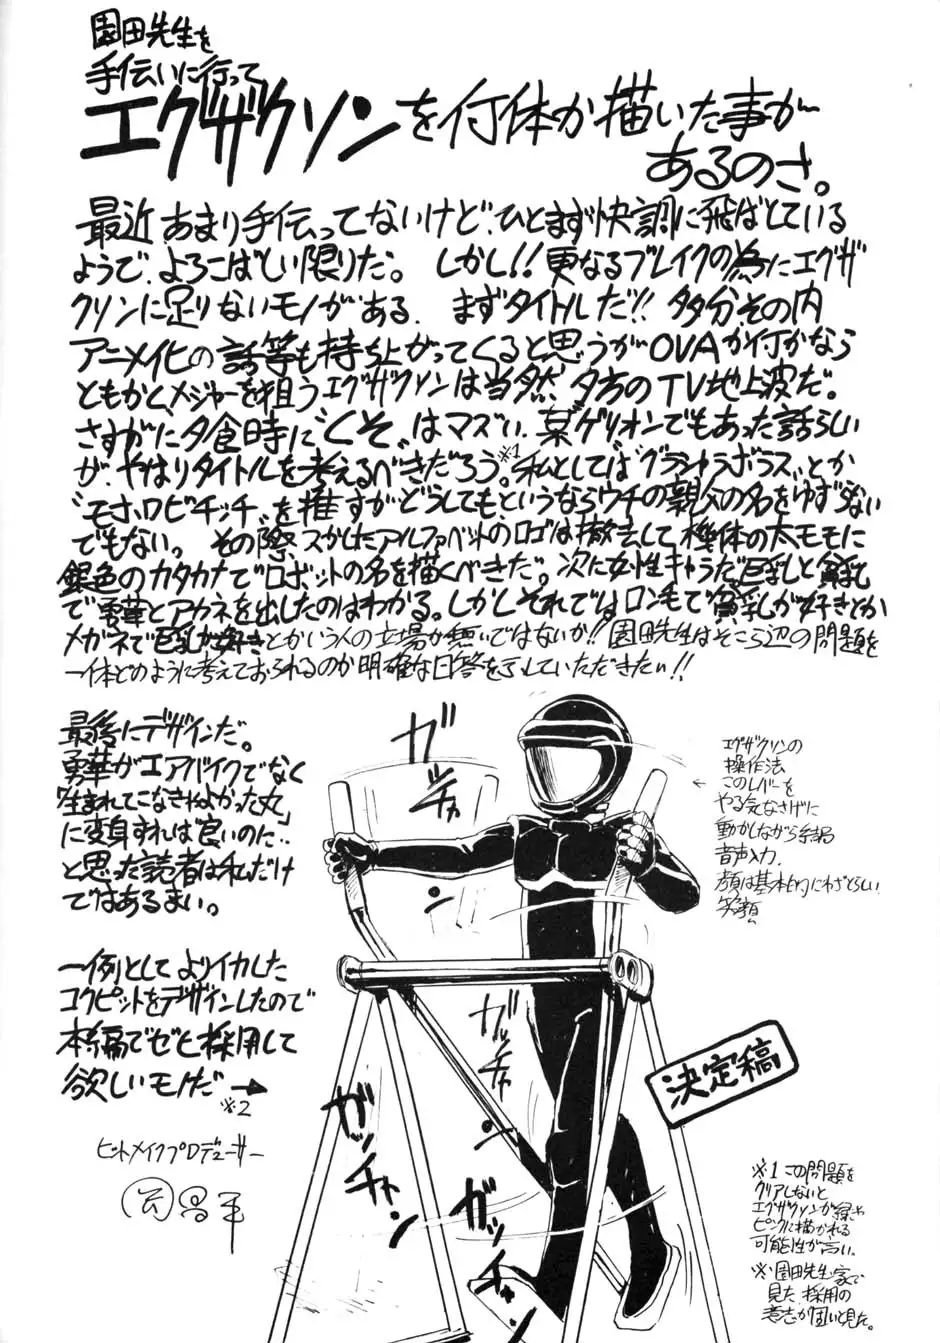 園田先生を
手伝いに行って
エグザクソンを何体か描いた事が
あるのさ。
最近あまり手伝ってないけど、ひとまず快調に飛ばしている
ようで、よろこばしい限りだ。しかし!!更なるブレイクの為にエグザ
クソンに足りないモノがある。まずタイトルだ!!多分その内
アニメイヒの話等も持ち上がってくると思うがOVAか何かなら
ともかくメジャーを狙うエグザクソンは当然夕方のTV地上波だ。
さすがに夕食時に“くそ”はマズい。某ゲリオンでもあった話らしい
が、やはりタイトルを考えるべきだろう。※1私としては“グランゃラボラス”とか
“モホロビチッチ”を推すがどうしてもというならウチの親父の名をゆずらない
でもない。その際スかしたアルファベットのロゴは撤去して機体の太モモに
銀色のカタカナでロボットの名を描くべきだ。次に女性キャラだ巨乳と貧乳
で勇華とアカネを出したのはわかる。しかしそれではロン毛で貧乳が好きとか
メガネで巨乳が好きとかいう人の立場が無いではないか!!園田先生はそこら辺の問題を
一体どのように考えておられるのか明確な回答を示していただきたい!!
最後にデザインだ。
勇華がエアバイクでなく
「生まれてこなきゃよかった丸」
に変身すれば良いのに…
と思った読者は私だけ
ではあるまい。
一例としてよりイカした
コクピットをデザインしたので
本編でゼヒ採用して
欲しいモノだ→
※2
ヒットメイクプロデューサー
ガ
チャ
ガッチャン
ガッチャン
ガッチャ
エグザクソンの
操作法
←このレバーを
やる気なさげに
動かしながら
音声入力.
顔は基本的にわざとらしい
笑顔
決定稿
※1この問題を
クリアしないと
エグザクソンが緑や
ピンクに描かれる
可能性が高い.
※園田先生家で
見た.採用の
意志が固いと見た。